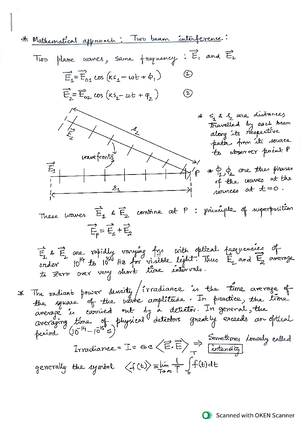 * Mathematical approach : Two beam interference :
Two plane waves, same frequency : E⃗₁ and E⃗₂
E⃗₁ = E⃗₀₁ cos (ks₁ - ωt + φ₁) ①
E⃗₂ = E⃗₀₂ cos (ks₂ - ωt + φ₂) ②
* s₁ & s₂ are distances
travelled by each beam
along its respective
path from its source
to observer point P
* φ₁, φ₂ are the phases
of the waves at the
sources at t=0.
s₂
E⃗₂
wavefronts
E⃗₁
P
s₁
These waves E⃗₁ & E⃗₂ combine at P : principle of superposition
E⃗p = E⃗₁ + E⃗₂
E⃗₁ & E⃗₂ are rapidly varying fns with optical frequencies of
order 10¹⁴ to 10¹⁵ Hz for visible light. Thus E⃗₁ and E⃗₂ average
to zero over very short time intervals.
* The radiant power density / irradiance is the time average of
the square of the wave amplitude. In practice, the time
average is carried out by a detector. In general, the
averaging time of physical detectors greatly exceeds an optical
period (10⁻¹⁴ - 10⁻¹⁵ s)
Irradiance = I = ε₀c ⟨E⃗·E⃗⟩ → Sometimes loosely called
intensity
generally the symbol ⟨f(t)⟩ = lim T→∞ 1/T ∫₀ᵀ f(t)dt
Scanned with OKEN Scanner